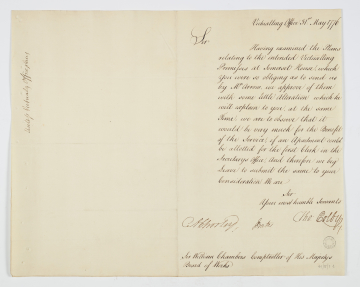 Victualling Office 31st May 1776
Sir
Having examined the Plans
relating to the intended Victualling
Premises at Somerset House; which
You were so obliging as to send us
by Mr. we approve of them
with some little alteration which he
will explain to you; at the same
time we are to observe that it
would be very much for the Benefit
of the Service, if an Apartment could
be allotted for the first Clerk in the
Secretarys Office; And therefore we beg
leave to submit the same to your
Consideration We are
Sir
Your most humble Servants
Tho Colby
Sir William Chambers Comptroller of His Majestys
Board of Works